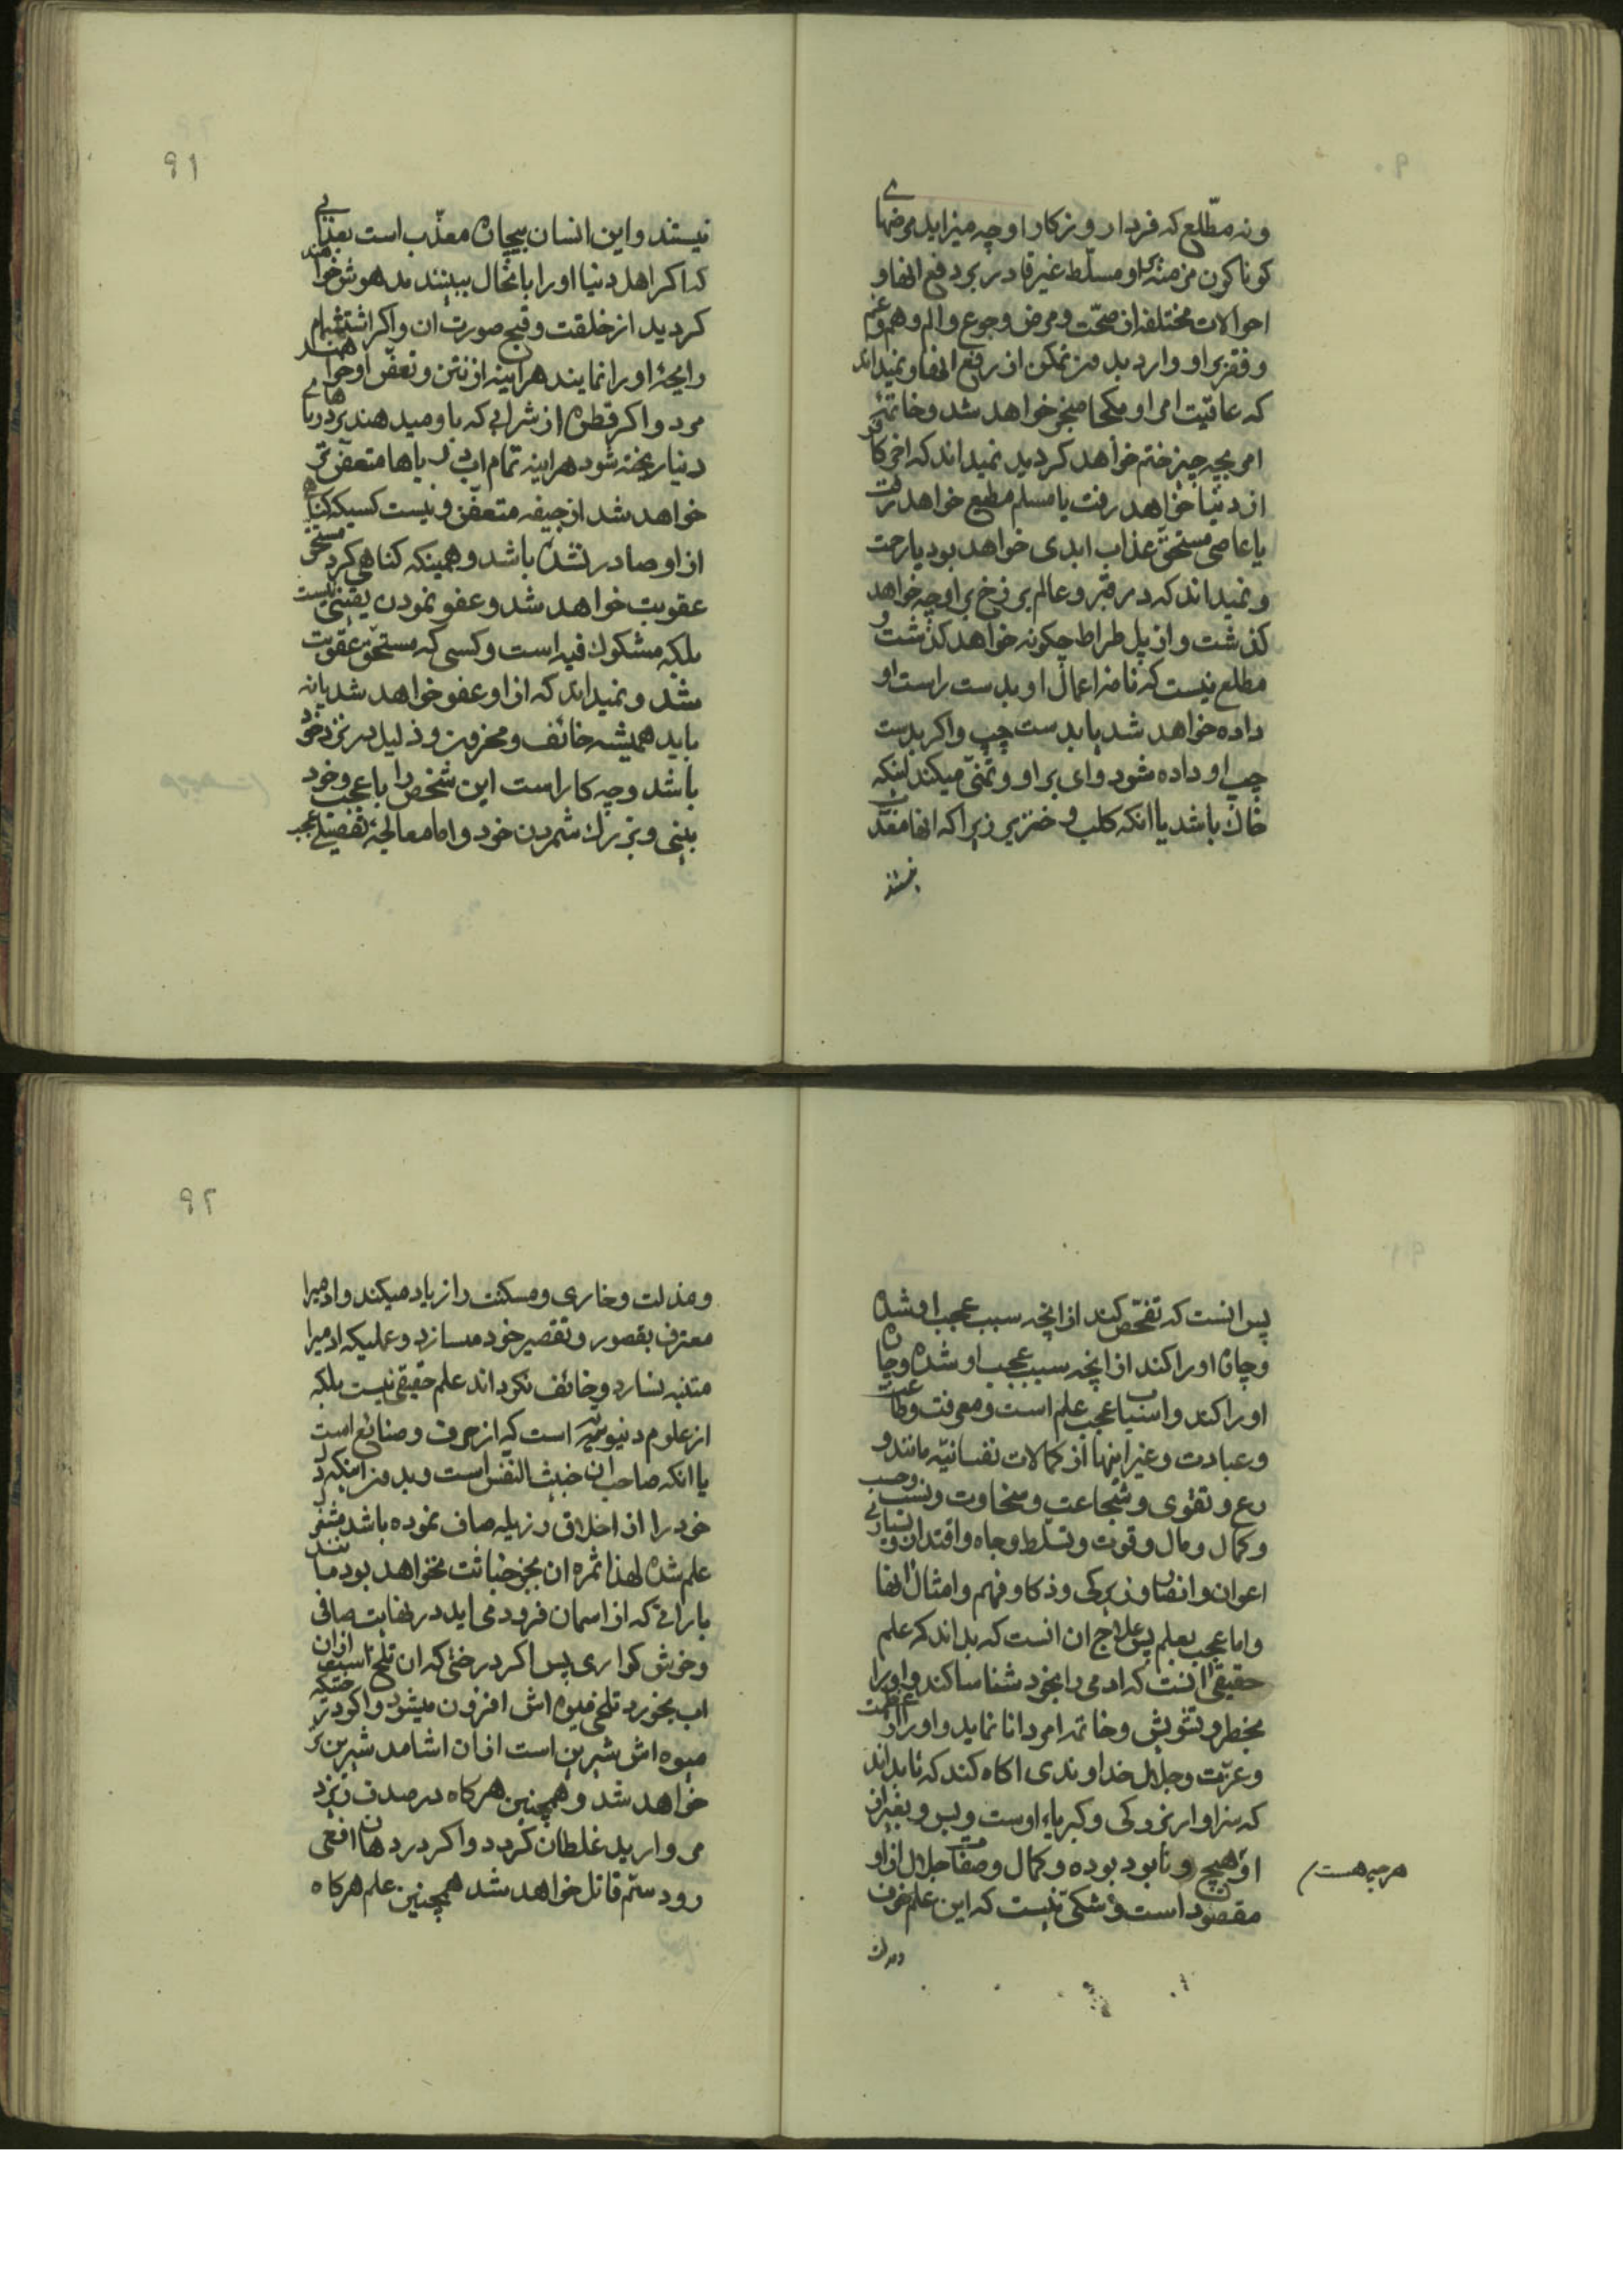 ونه مطّلع که فردا روزکار او چه میزاید مرضهای
کوناکون مزمنه او مسلّط غیر قادر بر دفع انها و
احوالات مختلفه از صحّت و مرض و جوع و الم و هم و غم
و فقر بر او وارد بدون تمکن از رفع انها و نمیداند
که عاقبت امر او بکجا منجر خواهد شد و خاتمهٔ
امر بچه چیز ختم خواهد کردید نمیداند که اخر کافر
از دنیا خواهد رفت یا مسلم مطیع خواهد رفت
یا عاصی مستحق عذاب ابدی خواهد بود یا رحمت
و نمیداند که در قبر و عالم برزخ بر او چه خواهد
کذشت و از پل طراط چکونه خواهد کذشت و
مطلع نیست که نامهٔ اعمال او بدست راست او
داده خواهد شد یا بدست چپ و اکر بدست
چپ او داده شود وای بر او و تمنّی میکند اینکه
خاک باشد یا انکه کلب و خنزیر زیرا که انها معذّب
نیستند
۹۱
نیستند و این انسان بیچاره معذّب است بعذابی
که اکر اهل دنیا او را بانحال ببینند مدهوش خواهند
کردید از خلقت و قبح صورت ان و اکر اشتشمام
رایحهٔ او را نمایند هراینه از نتن و تعفّن او خواهند
مرد و اکر قطره از شرابی که باو میدهند بر دریاهای
دنیا ریخته شود هراینه تمام اب دریاها متعفّن تر
خواهد شد از جیفه متعفّن و نیست کسیکه کناه
از او صادر نشده باشد و همینکه کناهی کرد مستحق
عقوبت خواهد شد و عفو نمودن یقینی نیست
بلکه مشکوک فیه است و کسی که مستحق عقوبت
شد و نمیداند که از او عفو خواهد شد یا نه
باید همیشه خائف و محزون و ذلیل در نزد خود
باشد و چه کار است این شخص را با عجب و خود
بینی و بزرک شمردن خود و اما معالجهٔ تفصیلی عجب
پس انست که تفحّص کند از انچه سبب عجب او شده
و چاره او را کند از انچه سبب عجب او شده و چاره
او را کند و اسباب عجب علم است و معرفت و طاعت
و عبادت و غیر اینها از کمالات نفسانیّه مانند و
رع و تقوی و شجاعت و سخاوت و نسب و حسب
و کمال و مال و قوت و تسلط و جاه و اقتدار و بسیاری
اعوان و انصار و زیرکی و ذکا و فهم و امثال انها
و اما عجب بعلم پس علاج ان انست که بداند که علم
حقیقی انست که ادمی را بخود شناسا کند و او را
بخطر و تشویش و خاتمه امر دانا نماید و او را از عظمت
و عزّت و جلال خداوندی اکاه کند که تا بداند
که سزاوار بزرکی و کبریاء اوست و بس و بغیر از
او هیچ و نابود بوده و کمال و صفات جلال از او
هر چه هست
مقصود است و شکی نیست که این علم خوف
و مذلت
۹۲
و مذلت و خاری و مسکنت را زیاد میکند و ادمیرا
معترف بقصور و تقصیر خود مسازد و علمیکه ادمیرا
متنبه نسازد و خائف نکرداند علم حقیقی نیست بلکه
از علوم دنیویه است که از حرف و صنائع است
یا انکه صاحب ان خبیث النفس است و بدون اینکه دل
خود را از اخلاق رزیله صاف نموده باشد مشغول
علم شده لهذا ثمره ان بجز خباثت نخواهد بود مانند
بارانی که از اسمان فرود می اید در نهایت صافی
و خوش کواری پس اکر درختی که ان تلخ است از ان
اب بخورد تلخی میوه اش افزون میشود و اکر درختیکه
میوه اش شیرین است از ان اشامد شیرین تر
خواهد شد و همچنین هرکاه در صدف ریزد
مروارید غلطان کردد و اکر در دهان افعی
رود ستم قاتل خواهد شد همچنین علم هرکاه